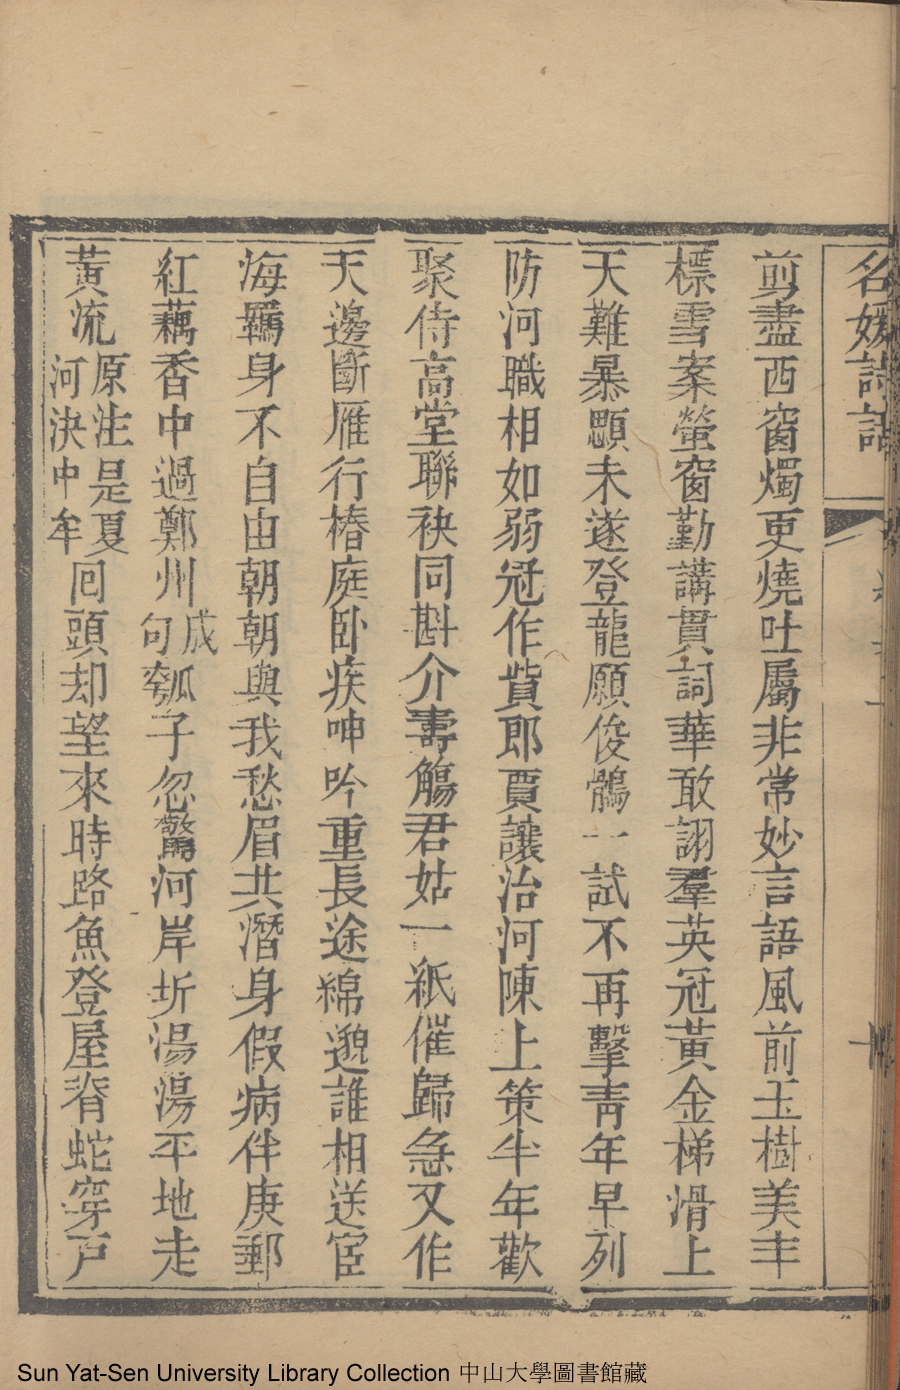 名媛詩話
剪盡西窗燭更燒吐屬非常妙言語風前玉樹美丰
標雪案螢窗勤講貫詞華敢詡羣英冠黃金梯滑上
天難暴顋未遂登龍願俊鶻一試不再擊青年早列
防河職相如弱冠作貲郎賈讓治河陳上策半年歡
聚侍高堂聯袂同斟介壽觴君姑一紙催歸急又作
天邊斷雁行椿庭臥疾呻吟重長途綿邈誰相送宦
海羈身不自由朝朝與我愁眉共潛身假病伴庚郵
紅藕香中過鄭州成句瓠子忽驚河岸圻湯湯平地走
黃流原注是夏河決中牟囘頭却望來時路魚登屋脊蛇穿戸
Sun Yat-Sen University Library Collection 中山大學圖書館藏